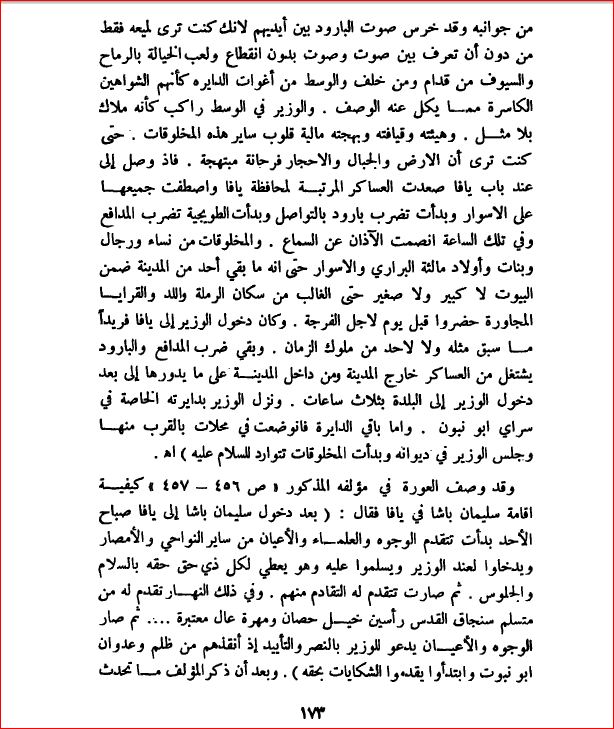 من جوانبه وقد خرس صوت البارود بين أيديهم لانك كنت ترى لميعه فقط
من دون أن تعرف بين صوت وصوت بدون انقطاع ولعب الخيالة بالرماح
والسيوف من قدام ومن خلف والوسط من أغوات الدايره كأنهم الشواهين
الكاسرة ممـا يكل عنه الوصف . والوزير في الوسط راكب كأنه ملاك
بلا مثـل . وهيئته وقيافته وبهجته مالية قلوب ساير هذه المخلوقات . حتى
كنت ترى أن الارض والجبال والاحجار فرحانة مبتهجة . فاذ وصل إلى
عند باب يافا صعدت العساكر المرتبـة لمحافظة يافا واصطفت جميعهـا
على الاسوار وبدأت تضرب بارود بالتواصل وبدأت الطوبجية تضرب المدافع
وفي تلك الساعة انصمت الآذان عن السماع . والمخلوقات من نساء ورجال
وبنات وأولاد مالئة البراري والاسوار حتى انه ما بقي أحد من المدينة ضمن
البيوت لا كبير ولا صغير حتى الغالب من سكان الرملة واللد والقرايـا
المجاورة حضروا قبل يوم لاجل الفرجة . وكان دخول الوزير إلى يافا فريداً
مـا سبق مثله ولا لاحد من ملوك الزمان . وبقي ضرب المدافع والبارود
يشتغل من العساكر خارج المدينة ومن داخل المدينـة على ما يدورها إلى بعد
دخول الوزير إلى البلدة بثلاث ساعات . ونزل الوزير بدايرته الخاصة في
سراي ابو نبوت . واما باقي الدايرة فانوضعت في محلات بالقرب منهـا
وجلس الوزير في ديوانه وبدأت المخلوقات تتوارد للسلام عليه ) اھ .
وقد وصف العورة في مؤلفه المذكور « ص ٤٥٦ – ٤٥٧ » كيفيـة
اقامة سليمان باشا في يافا فقال : ( بعد دخول سليمان باشا إلى يافا صباح
الأحد بدأت تتقدم الوجوه والعلمـاء والأعيان من ساير النواحي والأمصار
ويدخلوا لعند الوزير ويسلموا عليه وهو يعطي لكل ذي حق حقه بالسلام
والجلوس . ثم صارت تتقدم له التقادم منهم . وفي ذلك النهـار تقدم له من
متسلم سنجاق القدس رأسين خيـل حصان ومهرة عال معتبرة .... ثم صار
الوجوه والأعيـان يدعو للوزير بالنصر والتأييد إذ أنقذهم من ظلم وعدوان
ابو نبوت وابتدأوا يقدموا الشكايات بحقه ) . وبعد أن ذكر المؤلف مـا تحدث
١٧٣